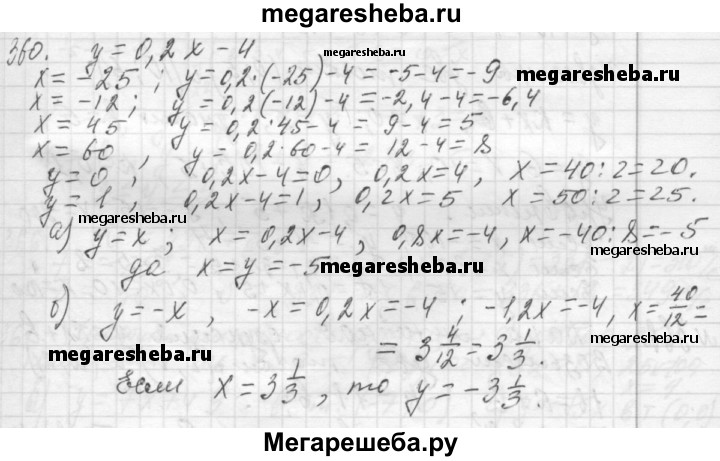 megaresheba.ru
360. y = 0,2x - 4
x = -25 ; y = 0,2·(-25) - 4 = -5 - 4 = -9 megaresheba.ru
x = -12; y = 0,2(-12) - 4 = -2,4 - 4 = -6,4
x = 45 y = 0,2·45 - 4 = 9 - 4 = 5
x = 60 , y = 0,2·60 - 4 = 12 - 4 = 8
y = 0 , 0,2x - 4 = 0, 0,2x = 4, x = 40:2 = 20.
y = 1 , 0,2x - 4 = 1, 0,2x = 5 x = 50:2 = 25.
megaresheba.ru
а) y = x ; x = 0,2x - 4, 0,8x = -4, x = -40:8 = -5
да x = y = -5 megaresheba.ru
б) y = -x , -x = 0,2x = -4 ; -1,2x = -4, x = 40/12 =
megaresheba.ru = 3 4/12 = 3 1/3.
Если x = 3 1/3, то y = -3 1/3.
Мегарешеба.ру